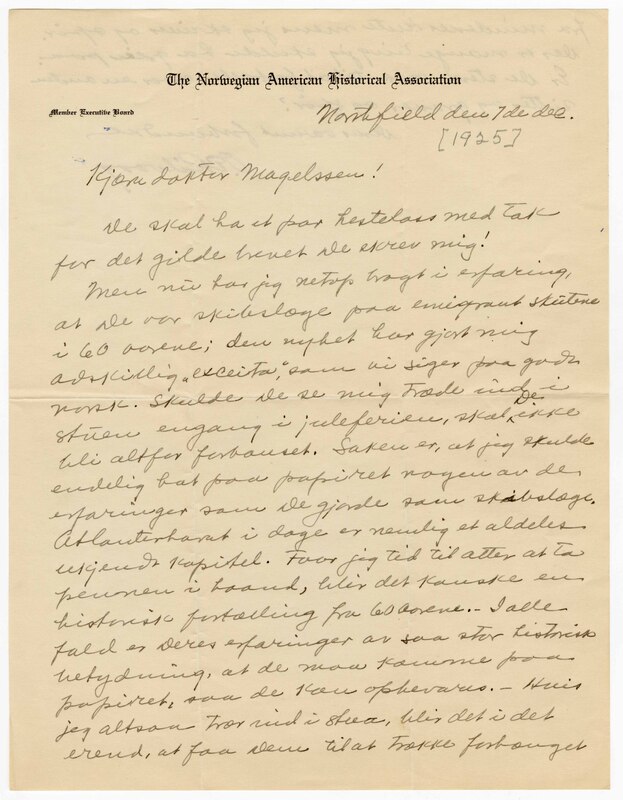 The Norwegian American Historical Association
Member Executive Board
Northfield den 7de dec.
[1925]
Kjære doktor Magelssen!
De skal ha et par hestelass med tak
for det gilde brevet De skrev mig!
Men nu har jeg netop bragt i erfaring,
at De var skibslæge paa emigrant skutene
i 60 aarene; den nyhet har gjort mig
adskillig „exceita", som vi siger paa godt
norsk. Skulde De se mig træde ind i
stuen engang i juleferien, skal De ikke
bli altfor forbauset. Saken er, at jeg skulde
endelig hat paa papiret nogen av de
erfaringer som De gjorde som skibslæge.
Atlanterhavet i dage er nemlig et aldeles
ukjendt kapitel. Faar jeg tid til atter at ta
pennen i haand, blir det kanske en
historisk fortælling fra 60 aarene. – I alle
fald er Deres erfaringer av saa stor historisk
betydning, at de maa komme paa
papiret, saa de kan opbevares. – Hvis
jeg altsaa træ'r ind i stua, blir det i det
erend, at faa Dem til at trække forhænget